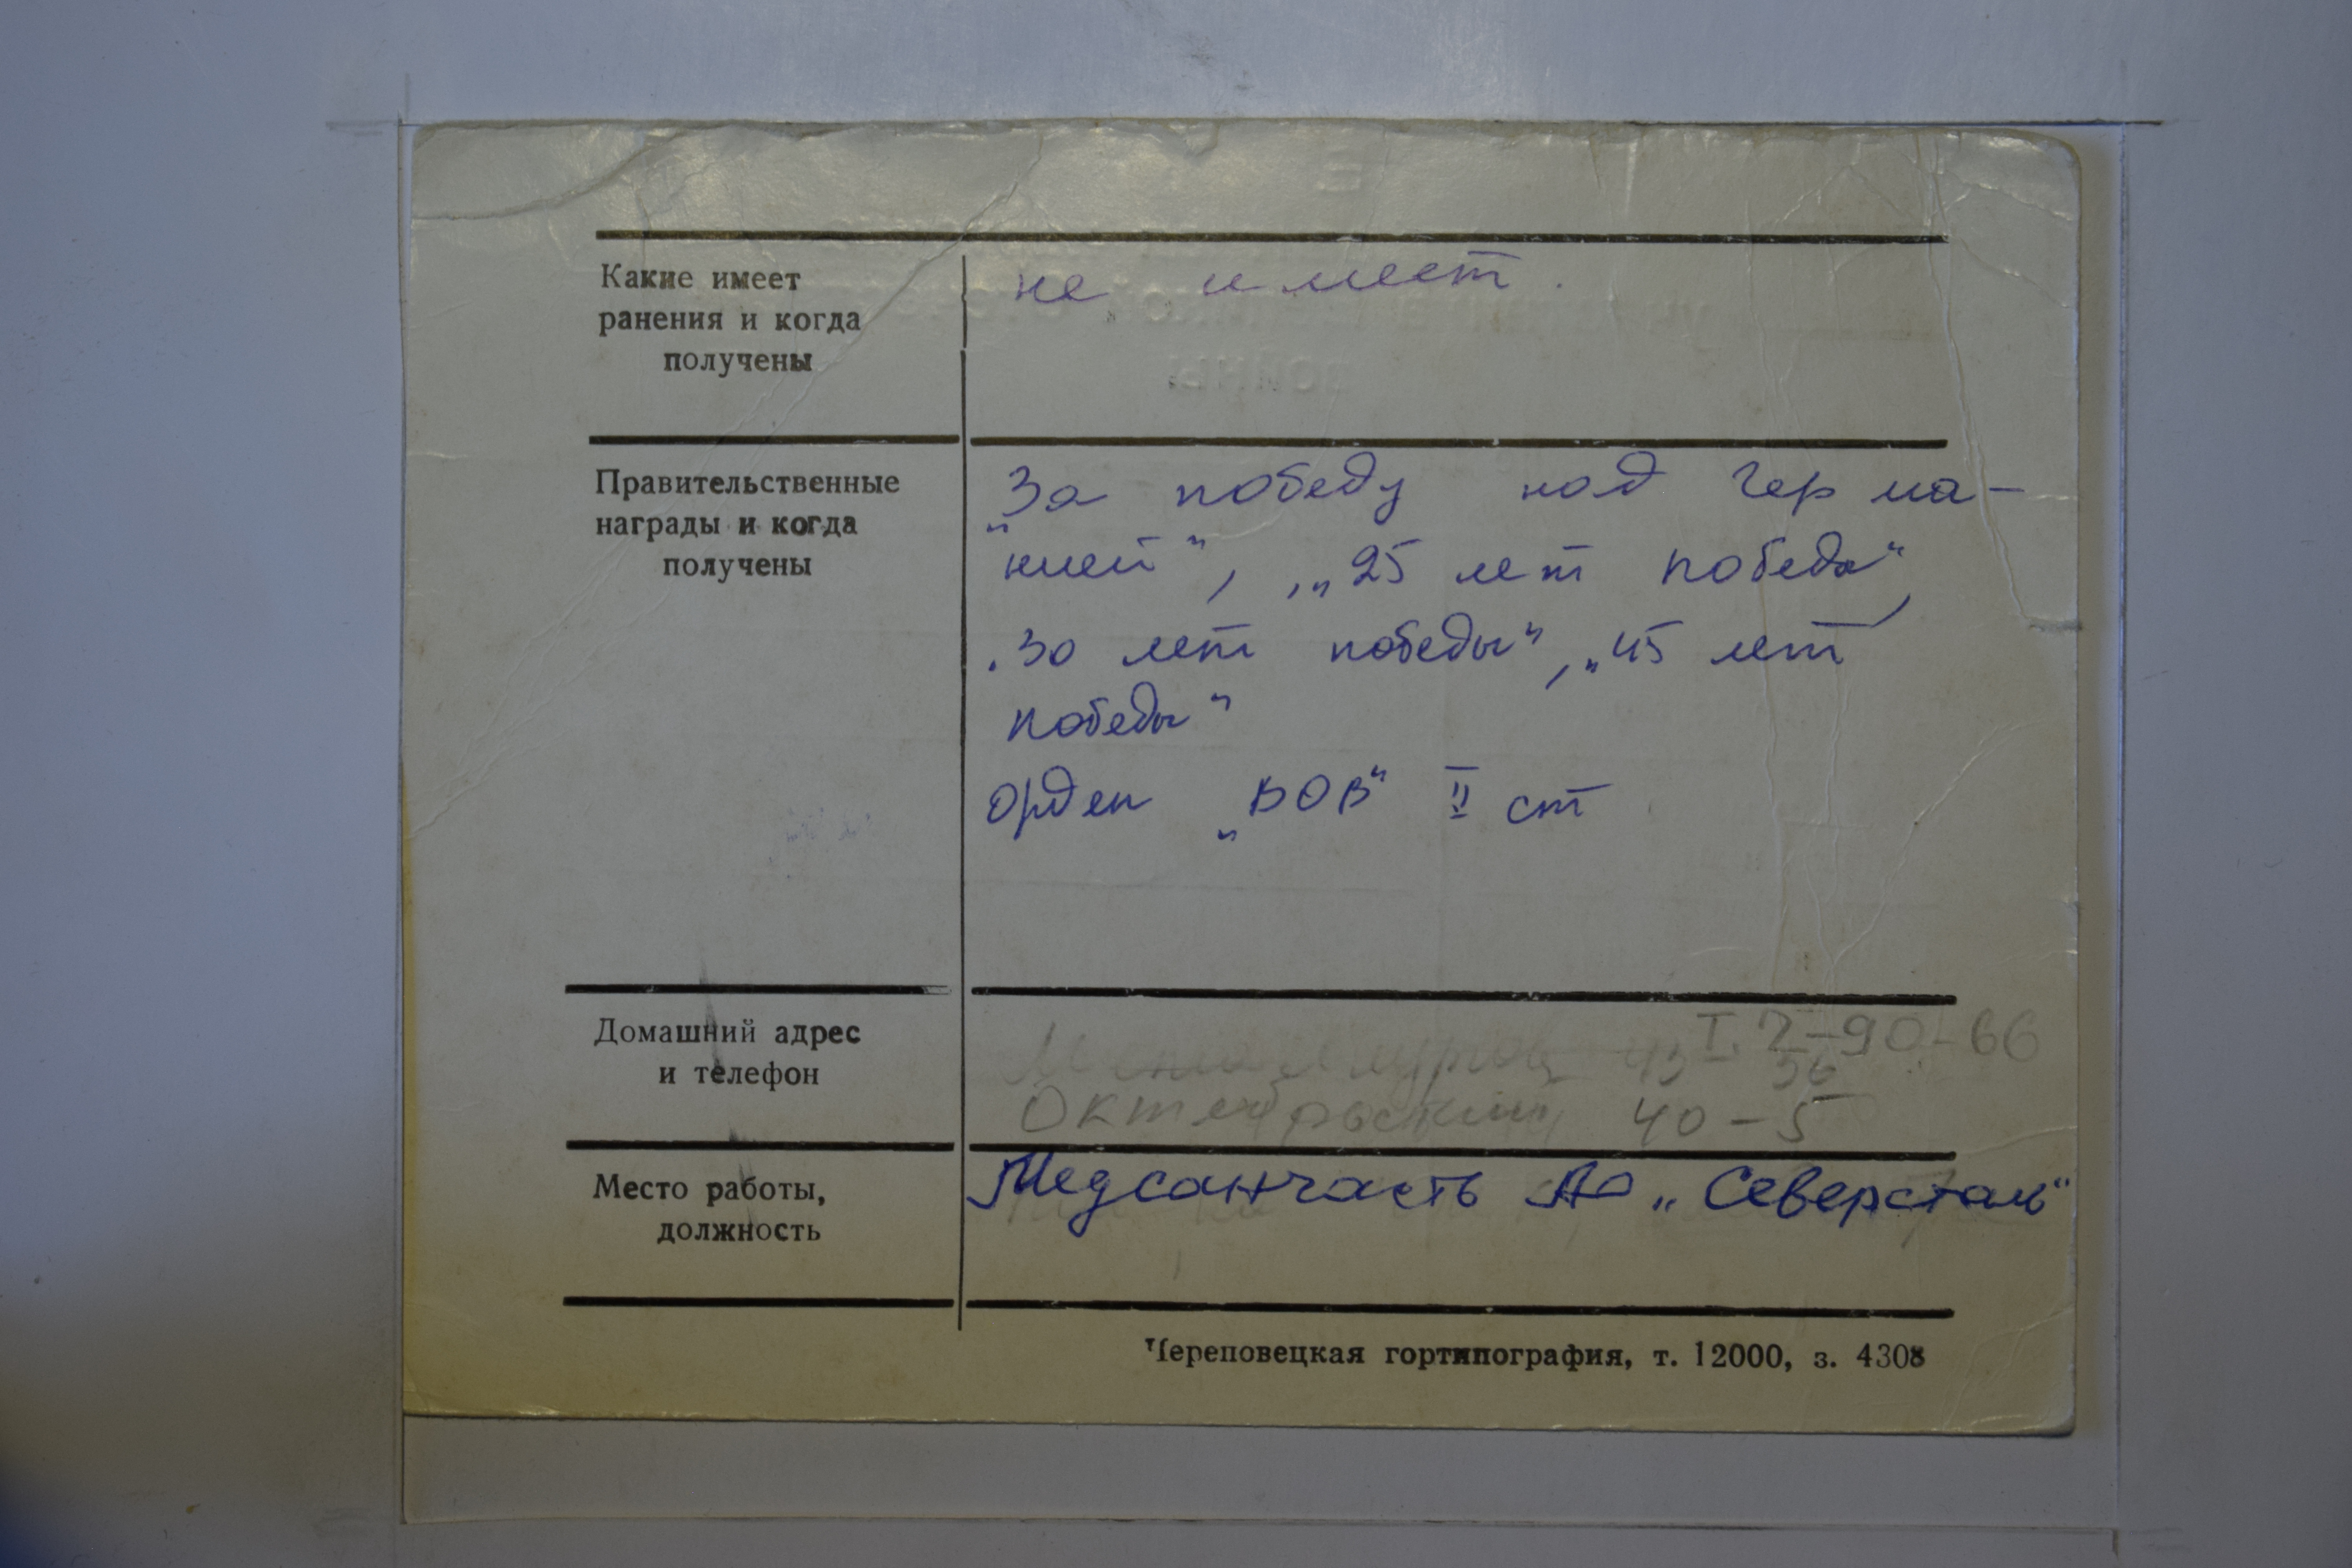 Какие имеет
ранения и когда
получены
не имеет.
Правительственные
награды и когда
получены
„За победу над Герма-
нией“, „25 лет победы“,
„30 лет победы“, „45 лет
победы“
Орден „ВОВ“ II ст
Домашний адрес
и телефон
т. 7-90-66
Октябрьский 40-5
Место работы,
должность
Медсанчасть АО „Северсталь“
Череповецкая гортипография, т. 12000, з. 4308